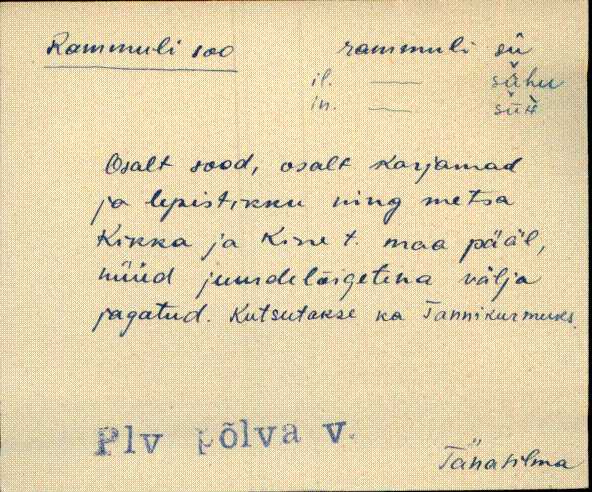 Rammuli soo rammuli sü
il. —— sühu
in. —— süü
Osalt sood, osalt karjamad
ja lepistikku ning metsa
Kikka ja Kine t. maa pääl,
nüüd juurdelõigetena välja
jagatud. Kutsutakse ka Tannikurmuks.
Plv põlva v.
Tähasilma